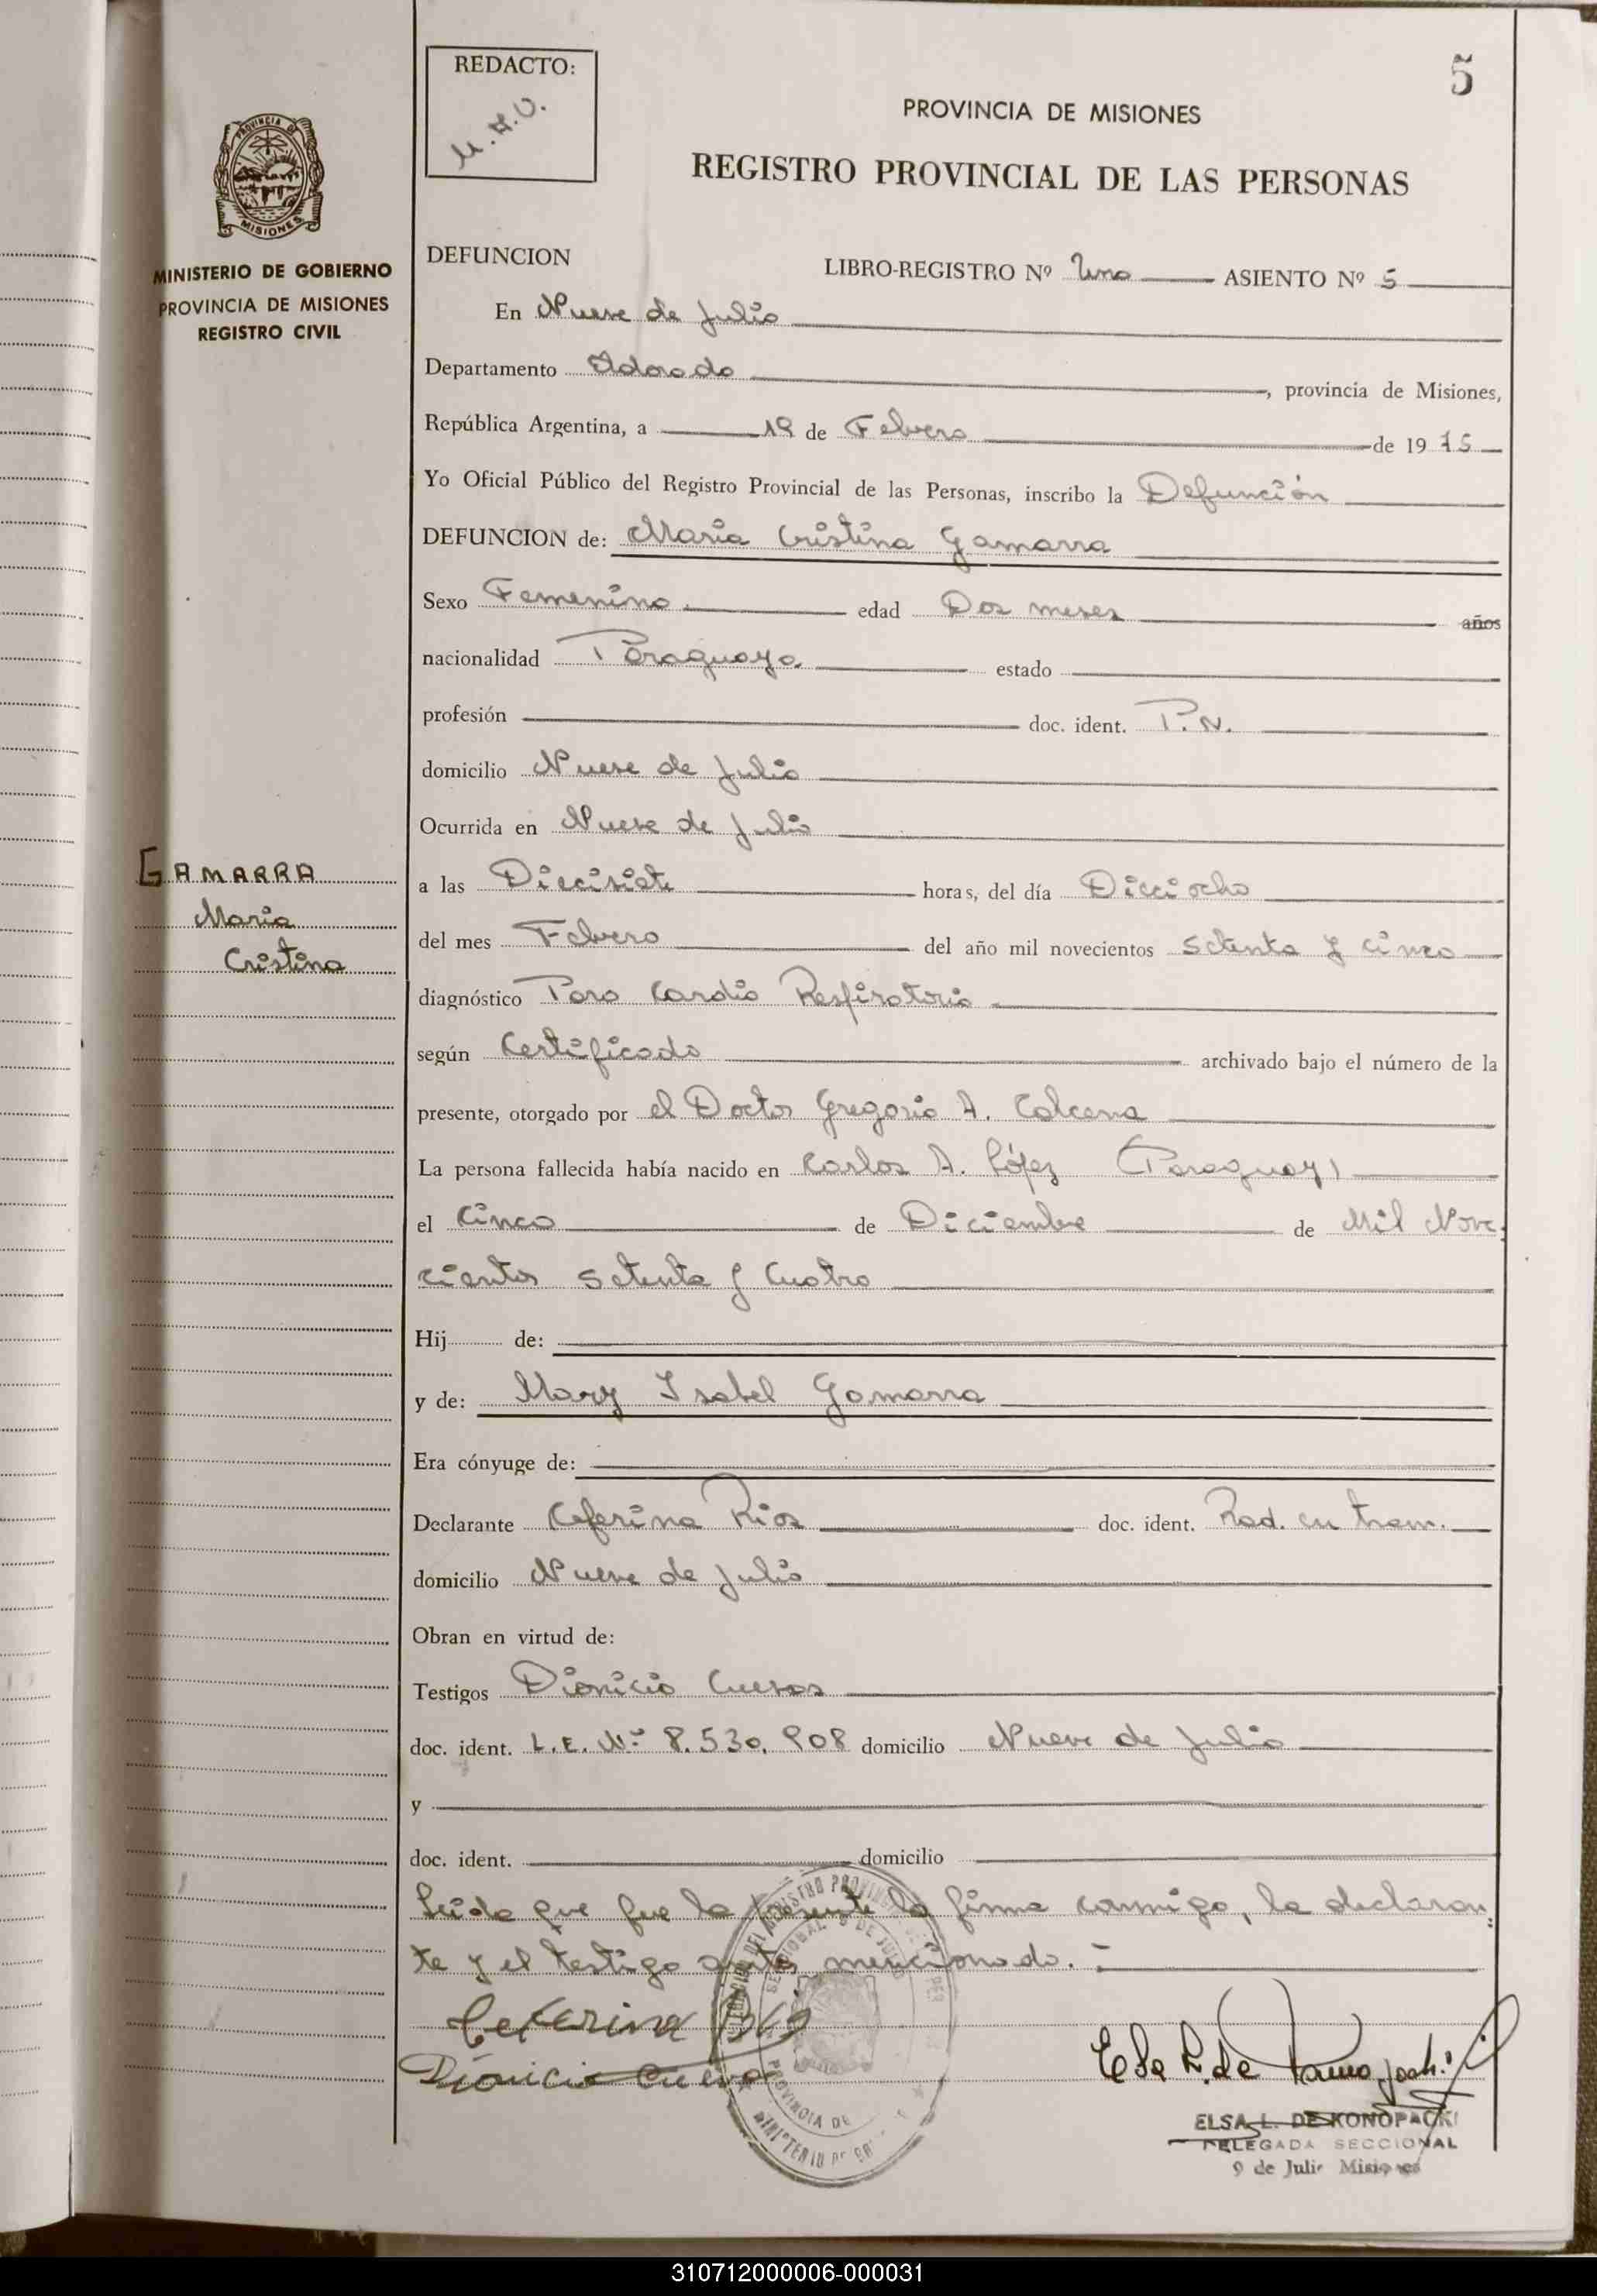 REDACTO:
M.A.U.
5
PROVINCIA DE MISIONES
REGISTRO PROVINCIAL DE LAS PERSONAS
PROVINCIA DE
MISIONES
MINISTERIO DE GOBIERNO
PROVINCIA DE MISIONES
REGISTRO CIVIL
DEFUNCION
LIBRO-REGISTRO Nº Uno ASIENTO Nº 5
En Nueve de Julio
Departamento Eldorado, provincia de Misiones,
República Argentina, a 19 de Febrero de 1975
Yo Oficial Público del Registro Provincial de las Personas, inscribo la Defunción
DEFUNCION de: María Cristina Gamarra
Sexo Femenino edad Dos meses años
nacionalidad Paraguaya estado
profesión doc. ident. P.N.
domicilio Nueve de Julio
Ocurrida en Nueve de Julio
GAMARRA
María
Cristina
a las Diecisiete horas, del día Dieciocho
del mes Febrero del año mil novecientos setenta y cinco
diagnóstico Paro Cardio Respiratorio
según Certificado archivado bajo el número de la
presente, otorgado por el Doctor Gregorio A. Calcena
La persona fallecida había nacido en Carlos A. López (Paraguay)
el Cinco de Diciembre de Mil Nove
cientos setenta y Cuatro
Hij de:
y de: Mary Isabel Gamarra
Era cónyuge de:
Declarante Ceferina Rios doc. ident. Rad. en tram.
domicilio Nueve de Julio
Obran en virtud de:
Testigos Dionicio Cuevas
doc. ident. L.E. Nº 8.530.908 domicilio Nueve de Julio
y
doc. ident. domicilio
Leída que fue la presente la firma conmigo, la declaran
te y el testigo antes mencionado.
Ceferina
Dionicio Cuevas
Elsa L. de
ELSA L. DE KONOPACKI
DELEGADA SECCIONAL
9 de Julio Misiones
310712000006-000031